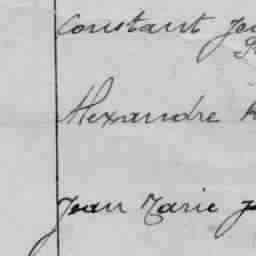 Constant
Alexandre
Jean Marie